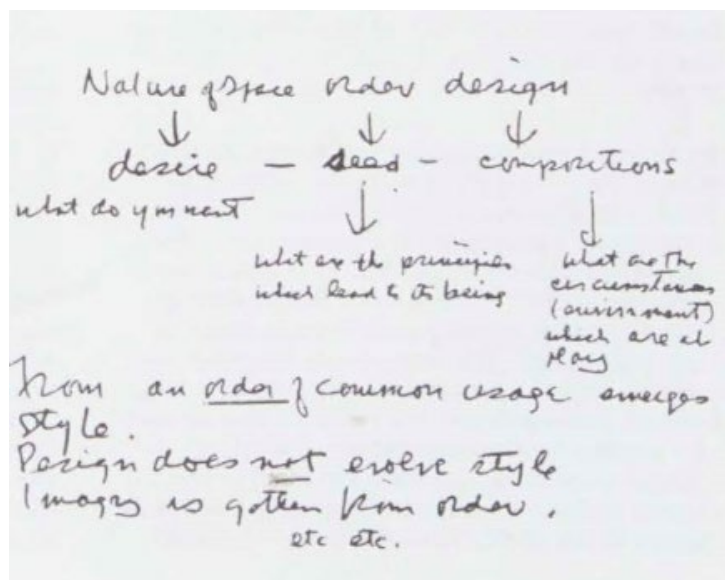 Nature of space order design
desire — seed — compositions
what do you want
what are the principles
which lead to its being
what are the
circumstances
(environment)
which are at
play
from an order of common usage emerges
style.
Design does not evolve style
Imagry is gotten from order.
etc etc.